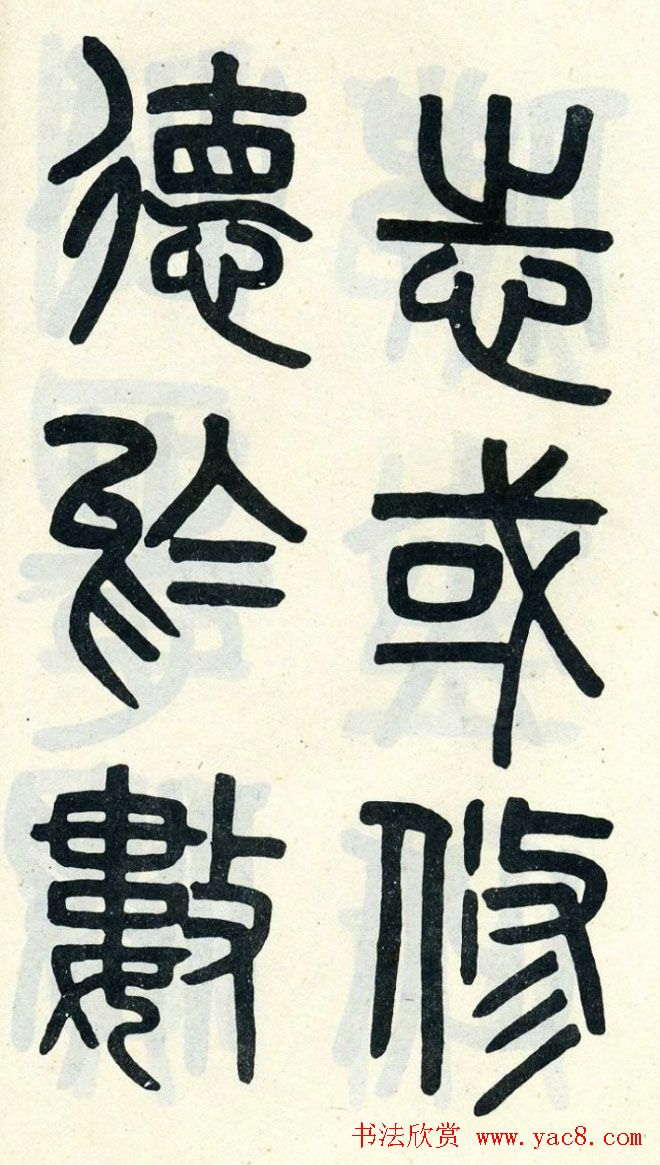 志或修
德於數
书法欣赏 www.yac8.com